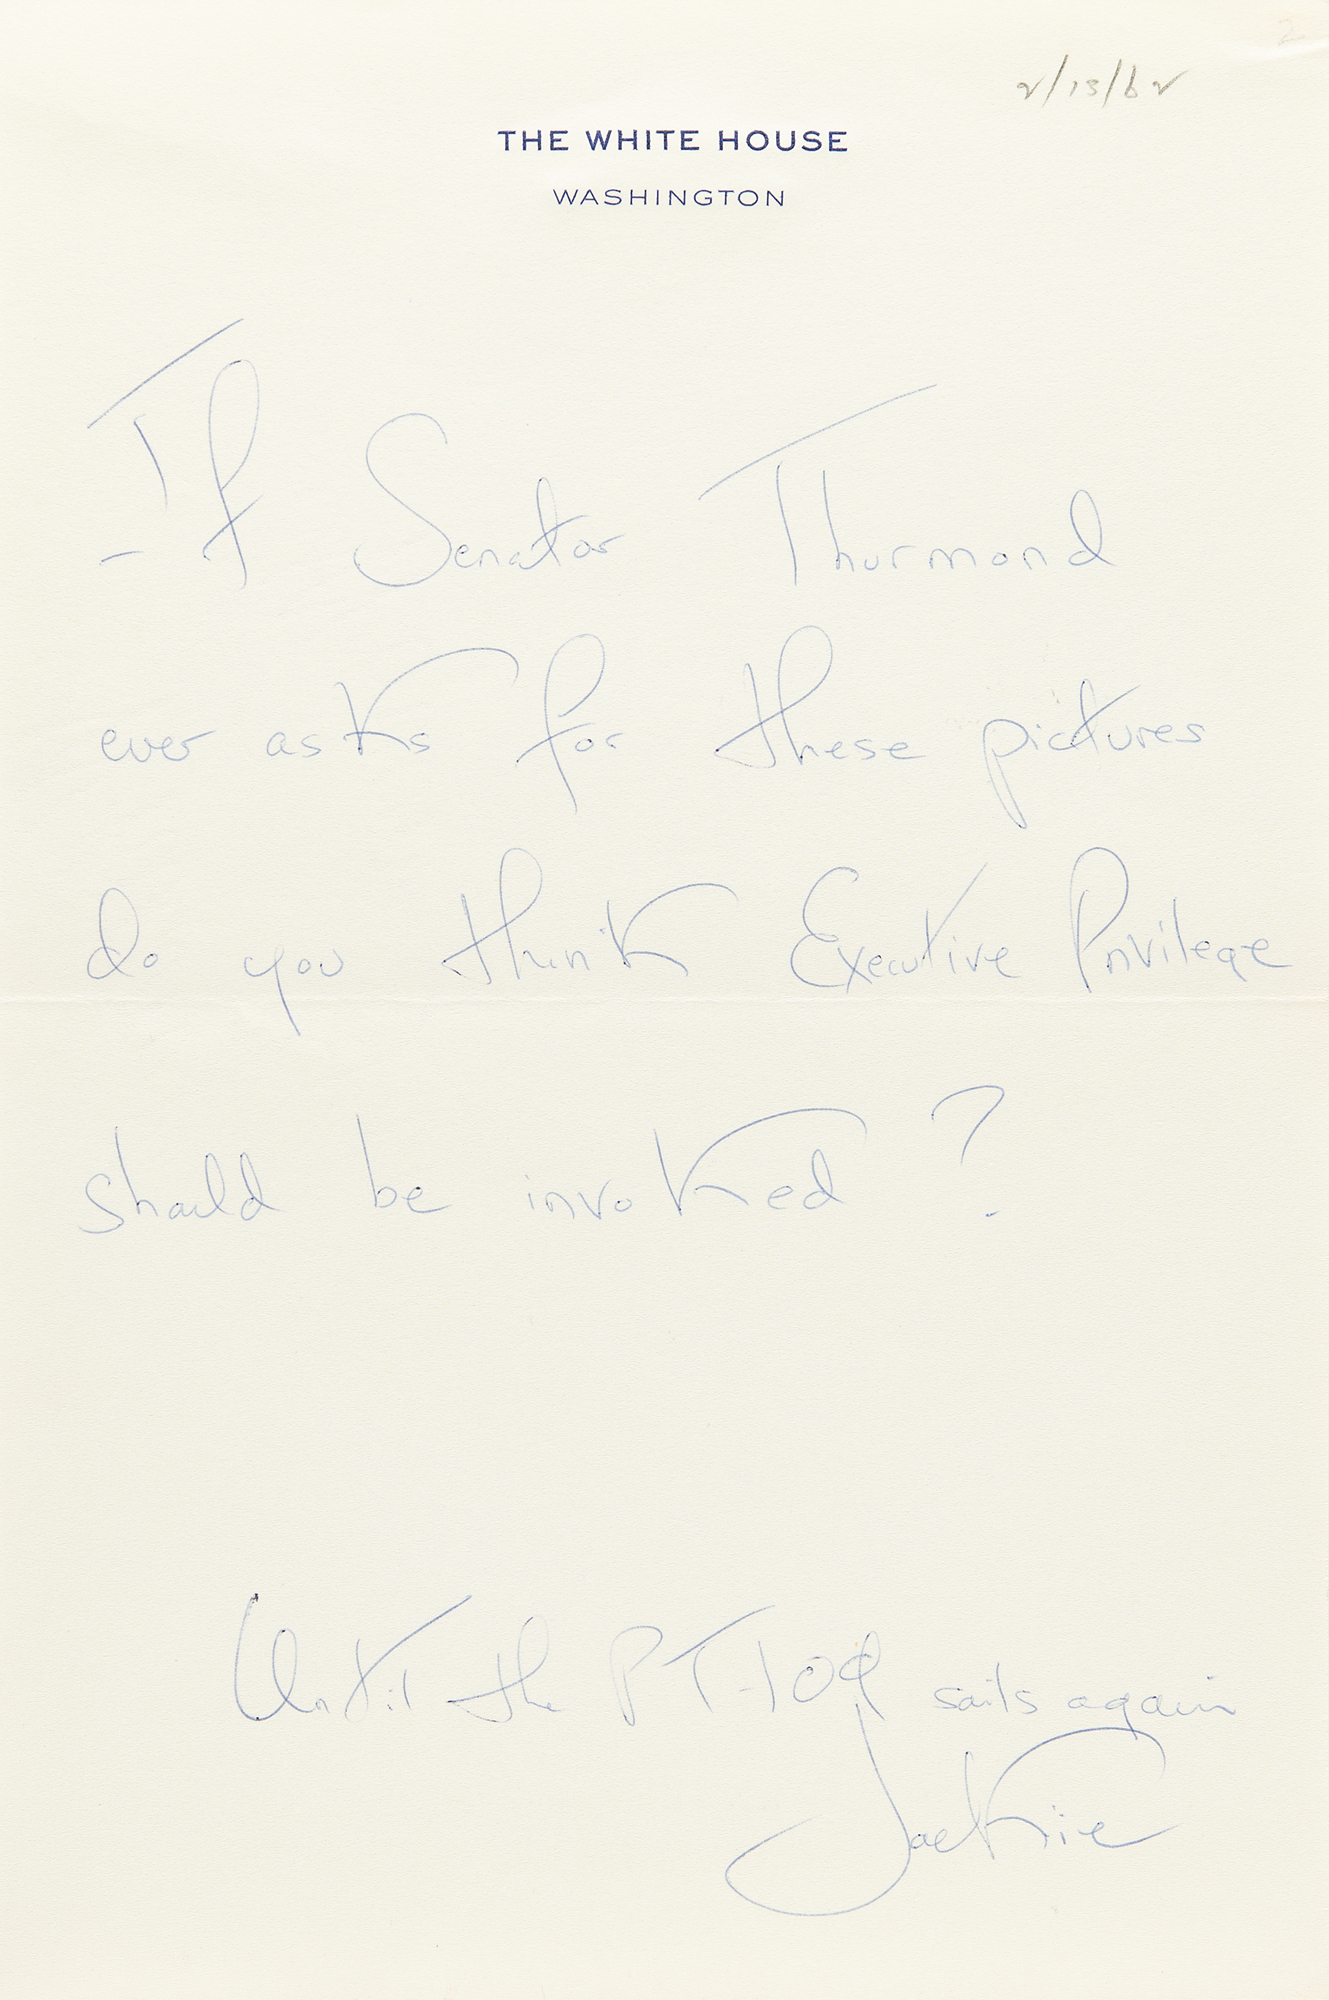 2
2/13/62
THE WHITE HOUSE
WASHINGTON
If Senator Thurmond
ever asks for these pictures
do you think Executive Privilege
should be invoked?
Until the PT-109 sails again
Jackie